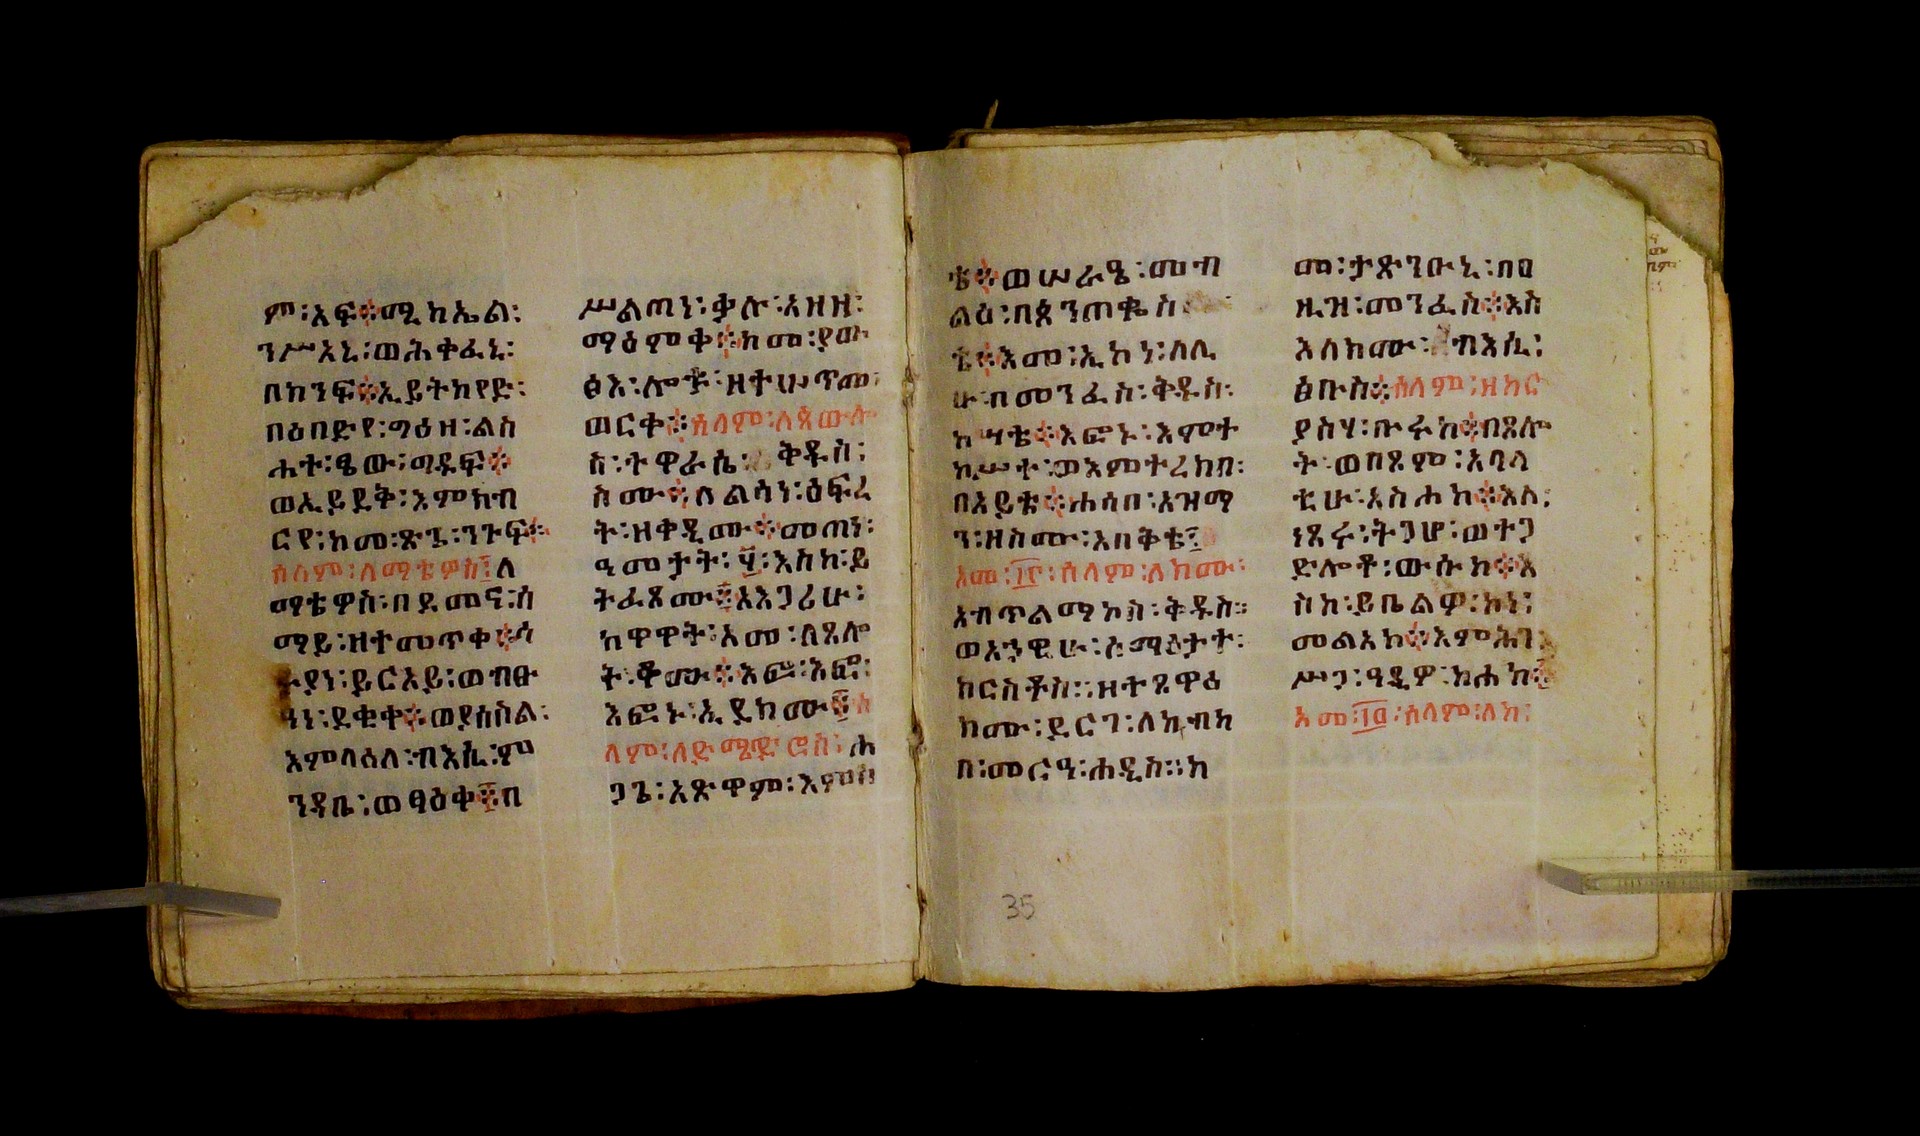 ም፡አፍ፨ሚካኤል፡
ንሥአኒ፡ወሕቀፈኒ፡
በክንፍ፨ኢይትከየድ፡
በዕበድየ፡ግዕዘ፡ልስ
ሐተ፡ዔው፡ጣዱፍ፨
ወኢይደቅ፡እምክብ
ርየ፡ከመ፡ጽጌ፡ንጉፍ፨
ሰላም፡ለማቴዎስ፤ለ
ማቴዎስ፡በደመና፡ሰ
ማይ፡ዘተመጥቀ፨ሳ
ይርአይ፡ወብፁ
ደቂቀ፨ወያሰስል፡
እምላዕለ፡ብእሲ፡ም
ንዳቤ፡ወፃዕቀ፨በ
ሥልጠነ፡ቃሉ፡አዘዘ፡
ማዕምቀ፨ከመ፡ያው
ፅእ፡ሎቱ፡ዘተሠጥመ፡
ወርቀ፨ሰላም፡ለጳውሎ
ስ፡ትዋራሴ፡ቅዱስ፡
ስሙ፨ሰልሳነ፡ዕፍረ
ት፡ዘቀዲሙ፨መጠነ፡
ዓመታት፡፶፡እስከ፡ይ
ትፈጸሙ፨አእጋሪሁ፡
ከዋዋት፡አመ፡ለጸሎ
ት፡ቆሙ፨እፎ፡እፎ፡
እፎኑ፡ኢደከሙ፨ሰ
ላም፡ለድሜጥሮስ፡ሐ
ጋጌ፡አጽዋም፡እምሰ
ቴ፨ወሠራዔ፡መብ
ልዕ፡በጰንጠቈስ
ቴ፨እመ፡ኢኮነ፡ሰሊ
ሁ፡በመንፈስ፡ቅዱስ፡
ከሣቴ፨እፎኑ፡እምተ
ከሥተ፡ወእምተረክበ፡
በአይቴ፨ሐሳበ፡አዝማ
ን፡ዘስሙ፡አበቅቴ፤
አመ፡፲፫፡ሰላም፡ለከሙ፡
አብጥልማኮስ፡ቅዱስ።
ወአኃዊሁ፡ሰማዕታተ፡
ክርስቶስ።ዘተጸዋዕ
ክሙ፡ደርገ፡ለክብካ
በ፡መርዓ፡ሐዲስ።ከ
መ፡ታጽንዑኒ፡በዐ
ዚዝ፡መንፈስ፨እስ
እለክሙ፡ብእሲ፡
ፅቡስ፨ሰላም፡ዘክር
ያስሃ፡ቡሩክ፨በጸሎ
ት፡ወበጾም፡አባላ
ቲሁ፡አስሐከ፨እስ፡
ነጸሩ፡ትጋሆ፡ወተጋ
ድሎቶ፡ውሱክ፨እ
ስከ፡ይቤልዎ፡ኮነ፡
መልአከ፨እምሕገ፡
ሥጋ፡ዓዲዎ፡ክሐከ፨
አመ፡፲፬፡ሰላም፡ለክ፡
35